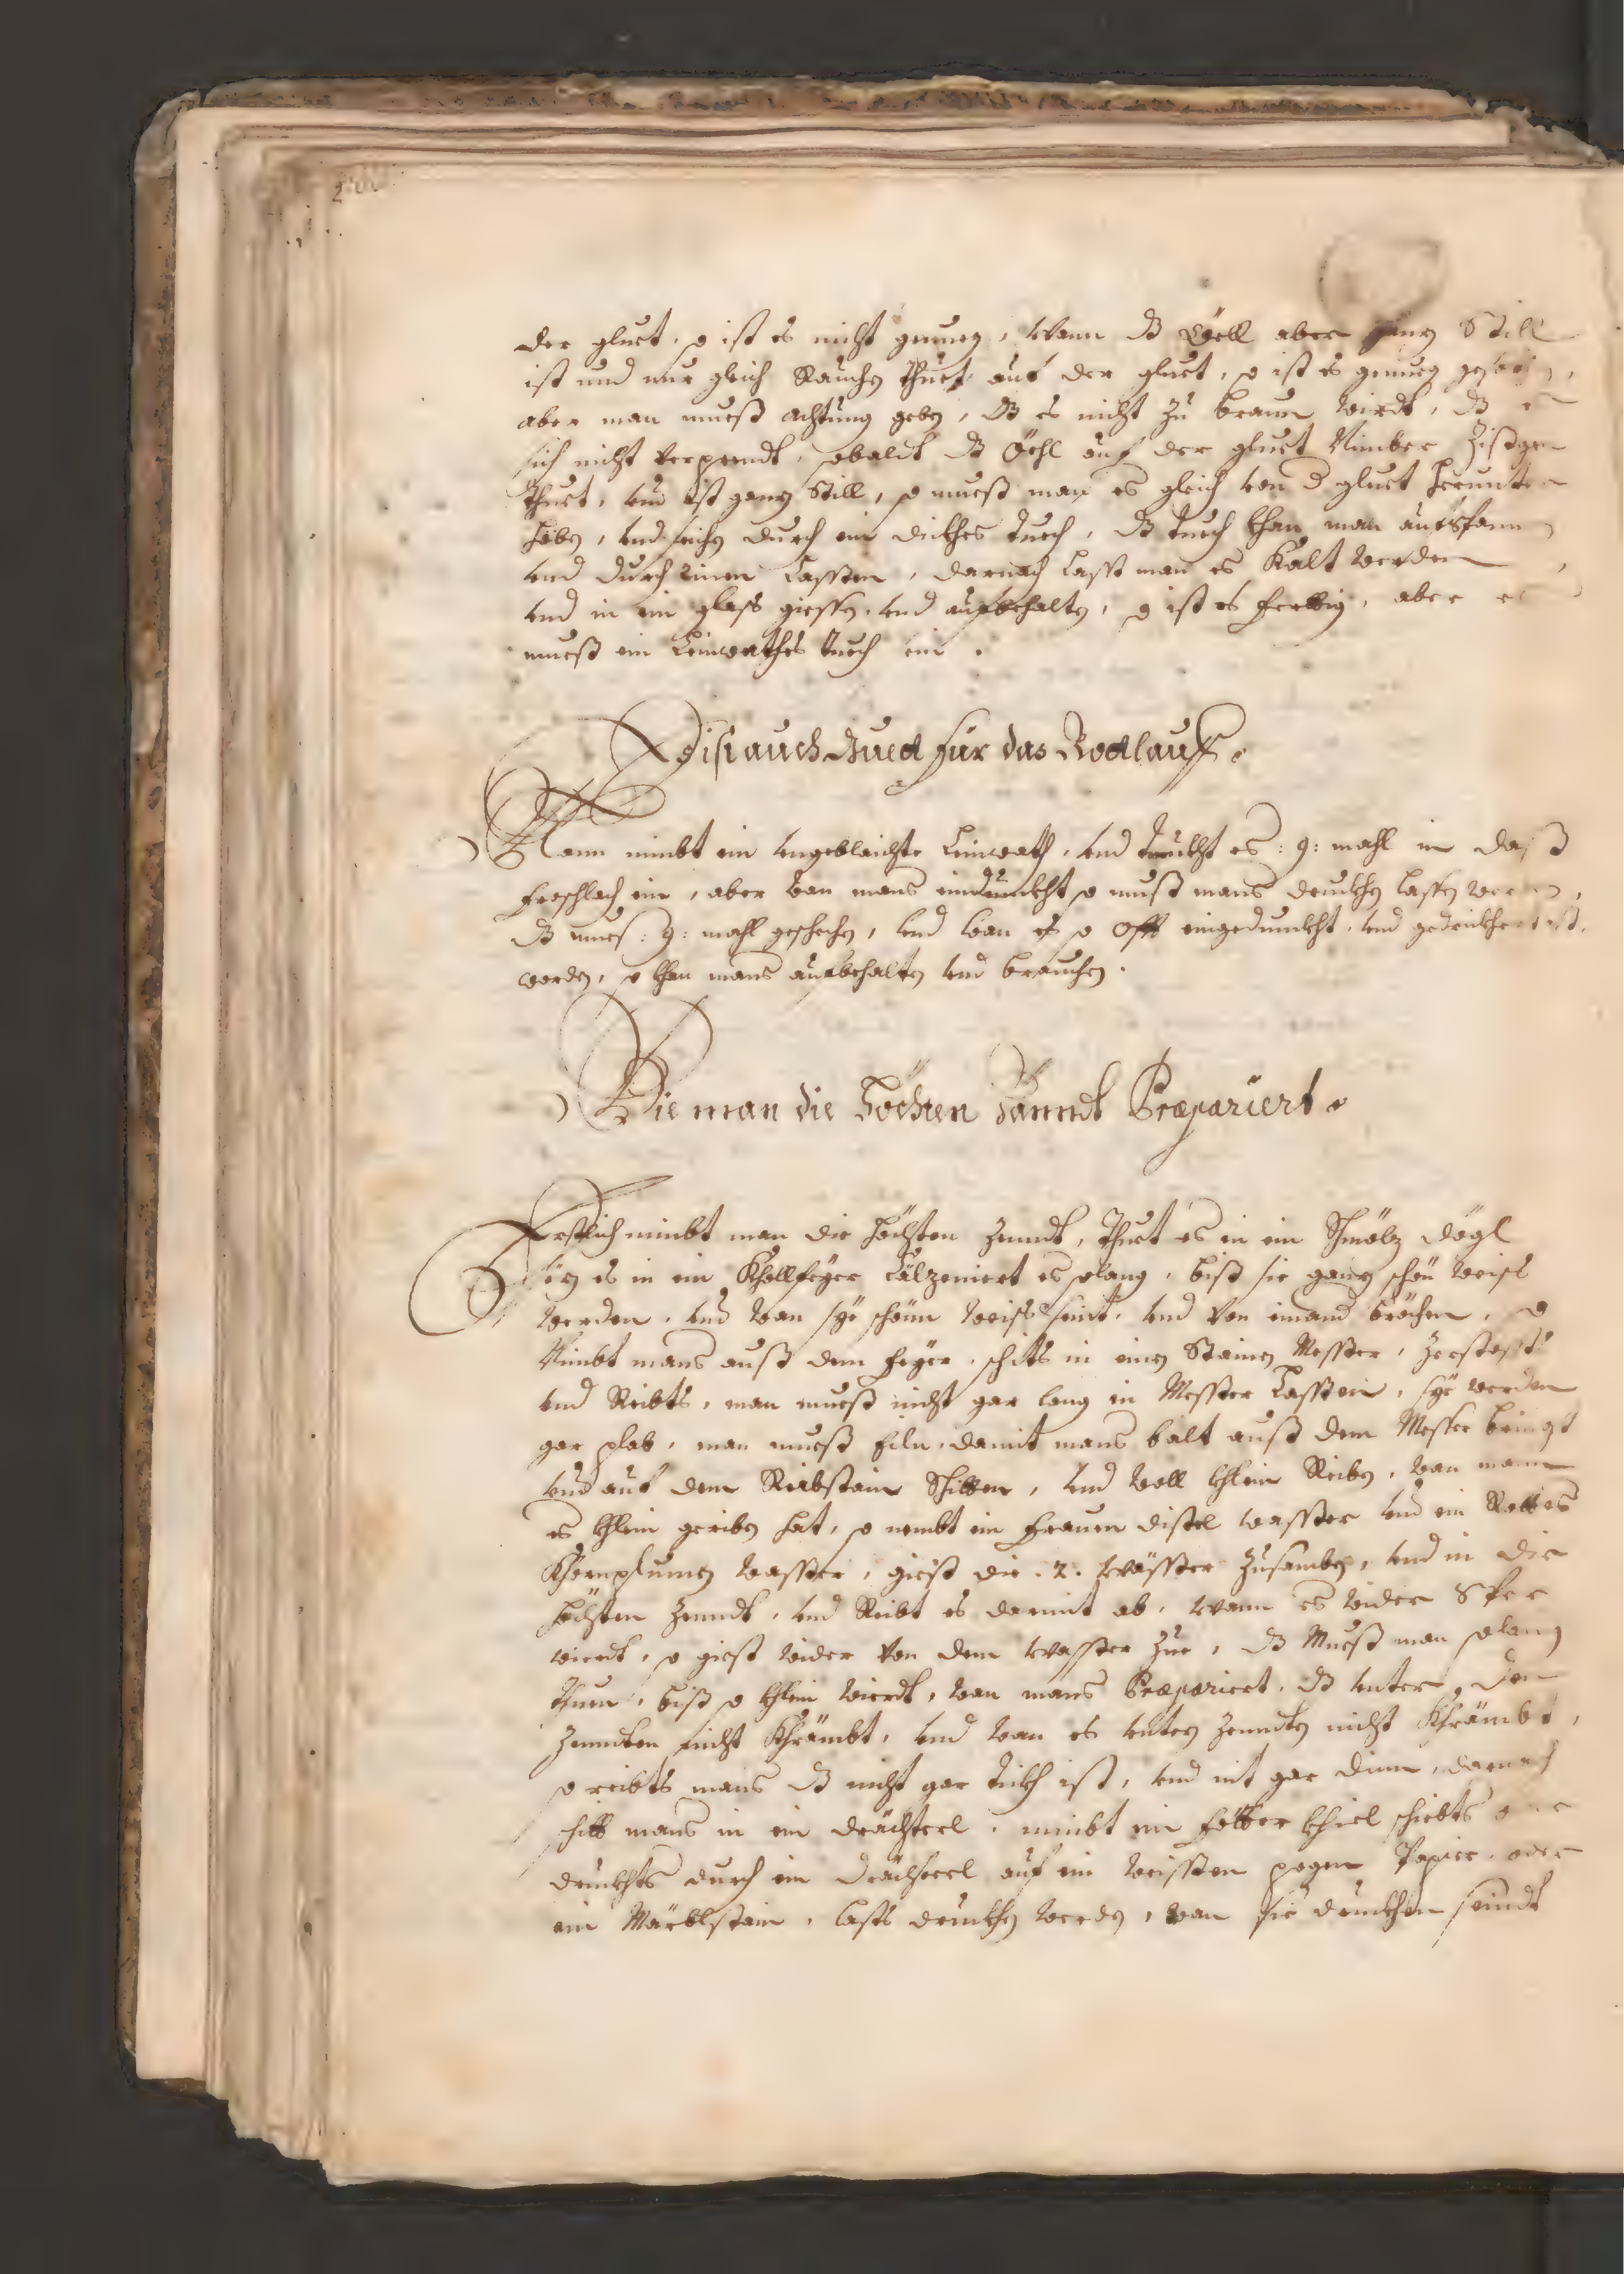 der gluet, so ist es nicht genueg, wann dß Öell aber ganz Still
ist und nur gleich Rauchen thuet auf der gluet, so ist es genueg
aber man mueß achtung geben, dß es nicht zu braun wirdt, dß es
sich nicht verprendt, sobaldt dß Öehl auf der gluet Nimber
thuet, vnd ist ganz Still, so mueß man es gleich von d gluet herunter
höben, vnd seichen durch ein dickhes tuech, dß tuech khan man aufspannen
vnd durch rinen lassen, darnach lasst man es Kalt werden
vnd in ein glaß giessen, vnd aufbehalten, so ist es ferttig, aber es
mueß ein Leinwathes tuech sein.
Dist auch Guet für das Rodtlauff.
Mann nimbt ein vngeblaichte Leinwath, vnd tunkht es :9: mahl in daß
froschlach ein, aber wan mans eindunckht so muß mans druckhen lassen werden,
dß mues :9: mahl geschehen, vnd wan es so offt eingedunckht, vnd gedrickhnet ist
worden, so khan mans aufbehalten vnd brauchen.
Wie man die Höchten Zänndt Præpariert.
Erstlich nimbt man die höchten Zenndt, thuet es in ein Schmölz dögl
söz es in ein Khollfeyer Cälzeniert es solang, biß sie ganz schön weiß
werden, vnd wan sye schönn weiß seint, vnd von einand bröchen, so
Nimbt mans auß dem feyer, schits in einen Stainen Messer, Zerstossts
vnd Reibts, man mueß nicht gar lang in Messer lassen, sye werden
gar plab, man mueß eiln, damit mans balt auß dem Messer bringt
vnd auf dem Reibstain Schitten, vnd woll khlein Reiben, wan mann
es khlein geriben hat, so nembt ein frauen distel wasser vnd ein Rottes
Khornplumen wasser, giest die .2. wässer zusamben, vnd in die
höchten Zenndt, vnd Reibt es darmit ab, wann es wider
wierdt, so giest wider von dem wasser zue, dß Mueß man solang
thuen, biß so khlein wierdt, wan mans Præpariert, dß unter den
Zenndten nicht Khrämbt, vnd wan es unter Zenndten nicht Khrämbt,
so reibts mans dß nicht gar dickh ist, vnd nit gar dinn, darnach
schitt mans in ein drächterl, nimbt ein fötter khiel schiebts
druckhts durch ein drächterl auf ein weissen pogen Papier, oder
ein Märblstain, lasts druckhen werden, wan sie druckhen seindt